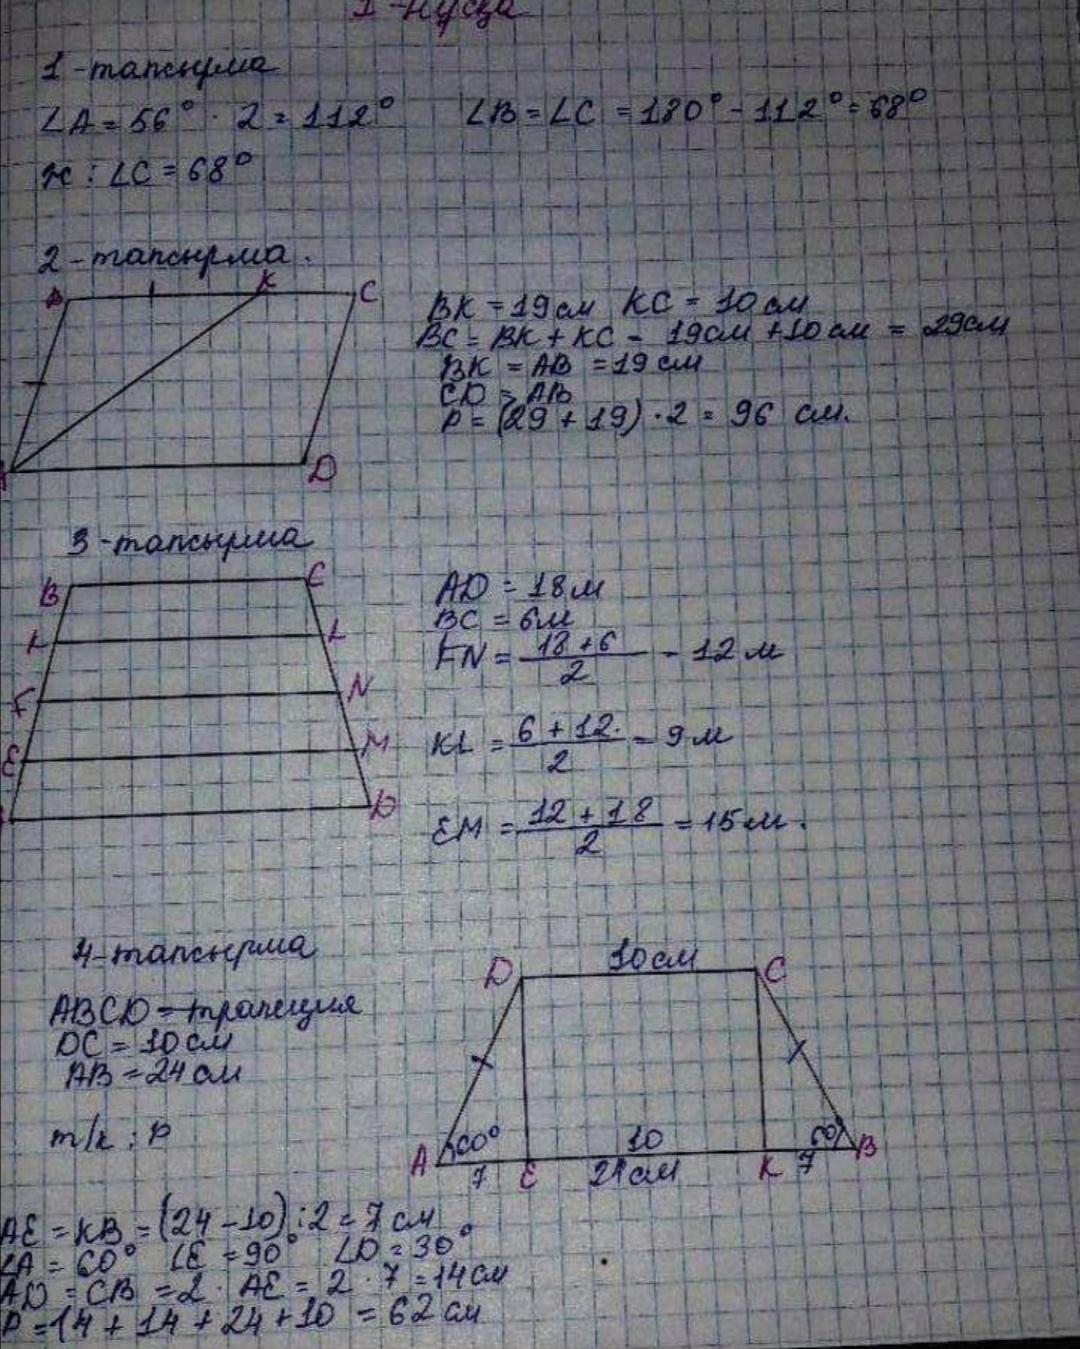 1-нұсқа
1-тапсырма
∠A = 56° · 2 = 112° ∠B = ∠C = 180° - 112° = 68°
ж: ∠C = 68°
2-тапсырма.
B K C
BK = 19 см KC = 10 см
BC = BK + KC = 19 см + 10 см = 29 см
BK = AB = 19 см
CD = AB
P = (29 + 19) · 2 = 96 см.
A D
3-тапсырма
B C
K L
F N
E M
A D
AD = 18 м
BC = 6 м
FN = (18 + 6)/2 = 12 м
KL = (6 + 12)/2 = 9 м
EM = (12 + 18)/2 = 15 м.
4-тапсырма
ABCD - трапеция
DC = 10 см
AB = 24 см
т/к : P
D 10 см C
60° 10 60°
A 7 E 24 см K 7 B
AE = KB = (24 - 10) : 2 = 7 см
∠A = 60° ∠E = 90° ∠D = 30°
AD = CB = 2 · AE = 2 · 7 = 14 см
P = 14 + 14 + 24 + 10 = 62 см